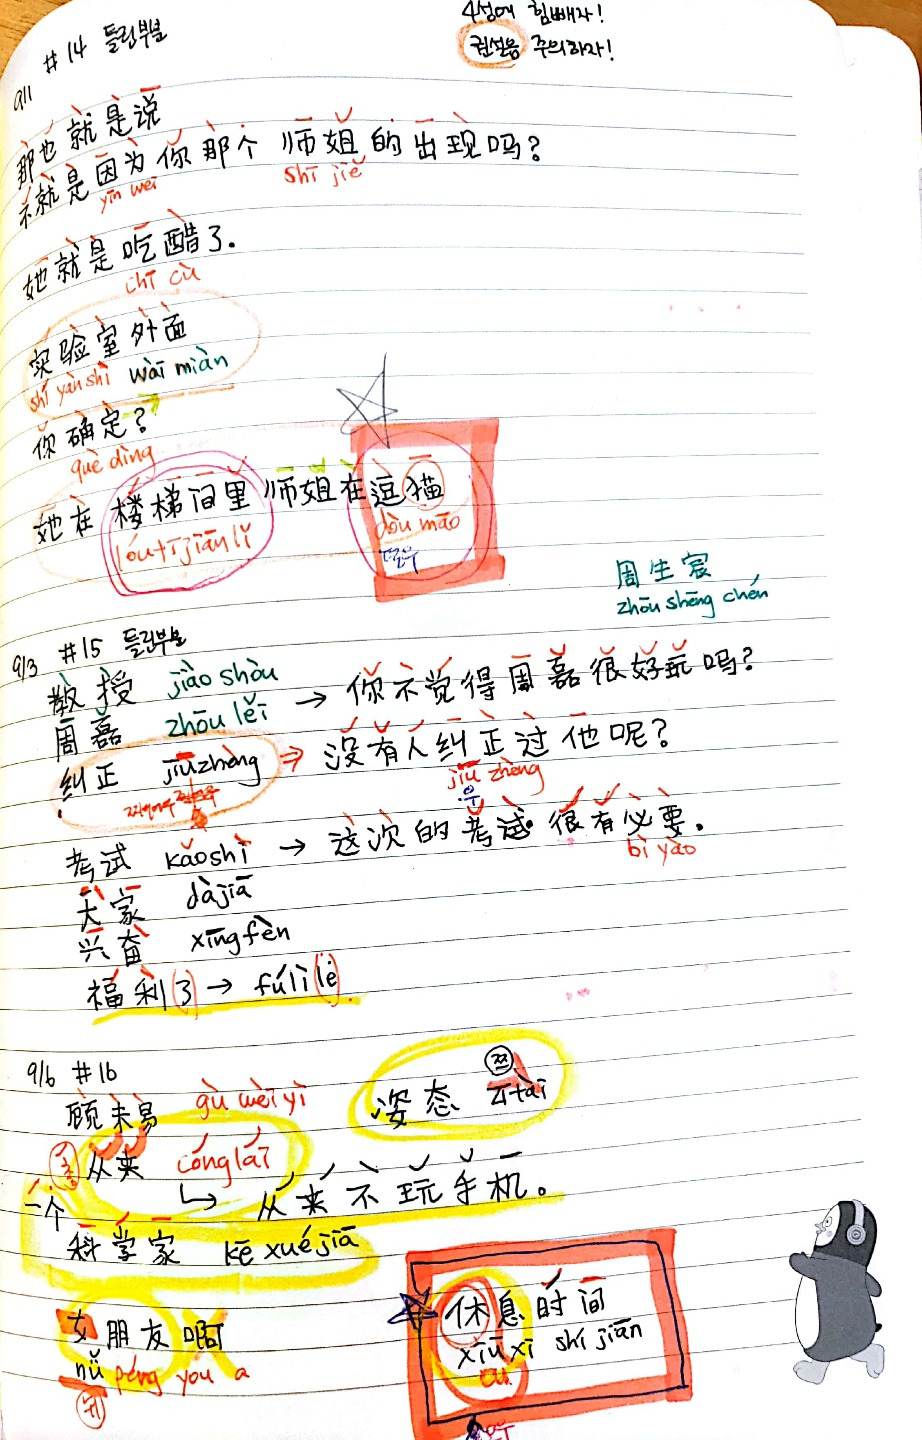 4성에 힘빼자!
권설음 주의하자!
9/1 #14 틀린부분
那也就是说
不就是因为你那个师姐的出现吗?
yīn wèi shī jiě
她就是吃醋了.
chī cù
实验室外面
shí yàn shì wài miàn
你确定?
què dìng
她在楼梯间里师姐在逗猫
lóu tī jiān lǐ dòu māo
떠우
周生宸
zhōu shēng chén
9/3 #15 틀린부분
教授 jiào shòu
周磊 zhōu lěi → 你不觉得周磊很好玩吗?
纠正 jiūzhèng → 没有人纠正过他呢?
jiū zhèng
우
考试 kǎoshì → 这次的考试很有必要.
bì yào
大家 dàjiā
兴奋 xīngfèn
福利(了) → fúlì(lè)
9/6 #16
顾未易 gù wèi yì
姿态 zītài
쯔
从来 cónglái
↳ 从来不玩手机。
一个
科学家 kē xuéjiā
女朋友啊
nǚ péng you a
뉘
休息时间
xiū xi shí jiān